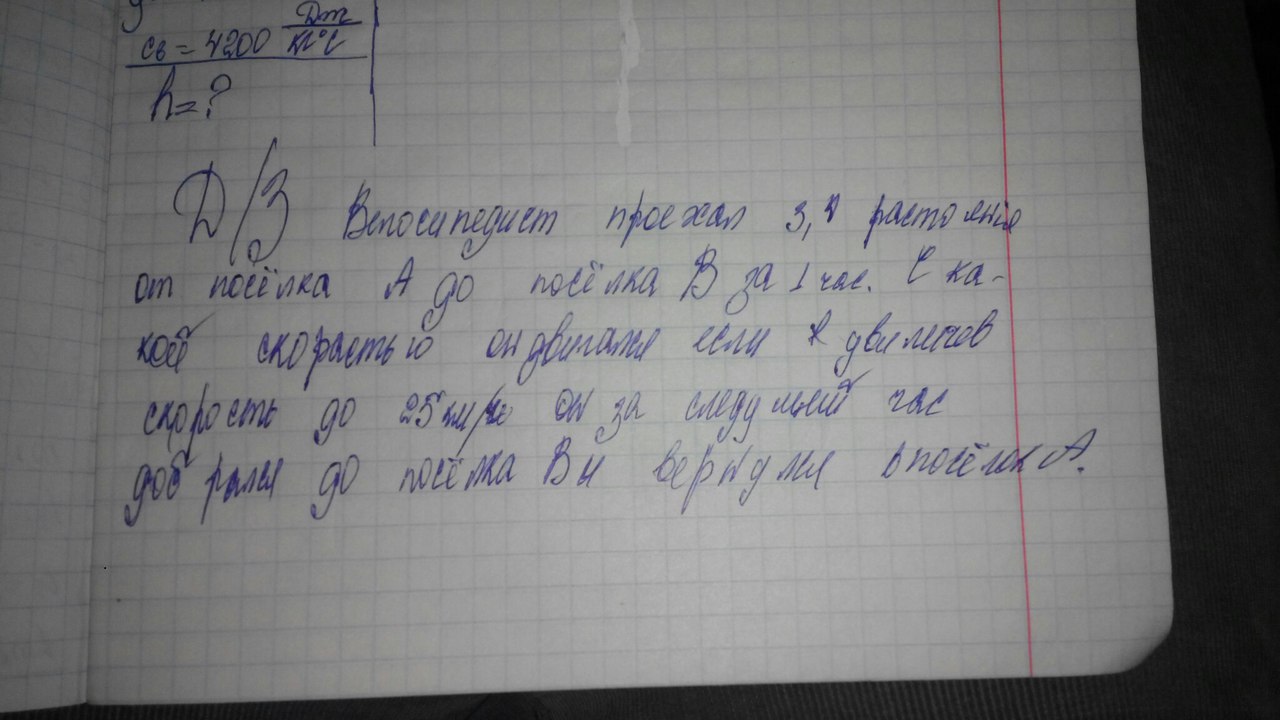 cв = 4200 Дж/кг°C
h = ?
Д/З Велосипедист проехал 3,4 растояния
от посёлка А до посёлка В за 1 час. С ка-
кой скорастью он двигался если
скорость до 25 км/ч он за следующий час
добрался до посёлка В и вернулся в посёлок А.